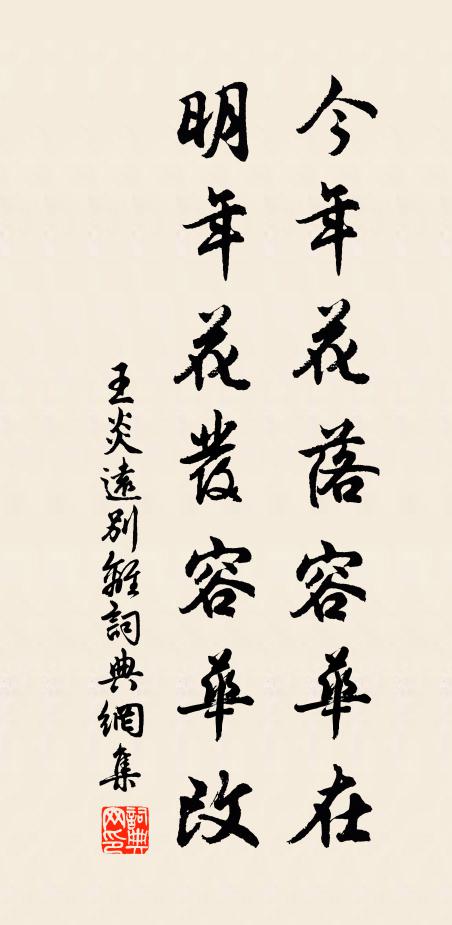 今年花落容華在
明年花發容華改
王炎遠別離詞典網集
詞典網印